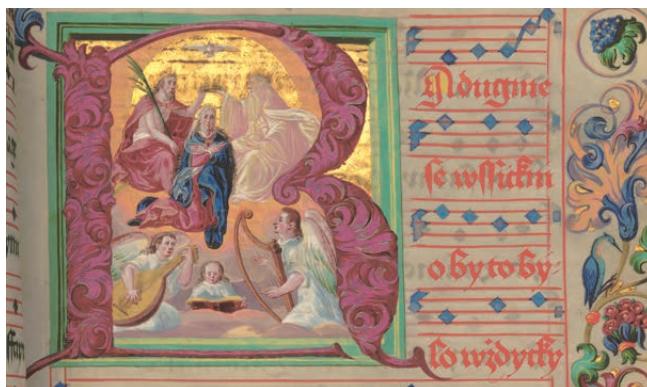 RAdugme
se wssickni
o by to by-
lo wždycky